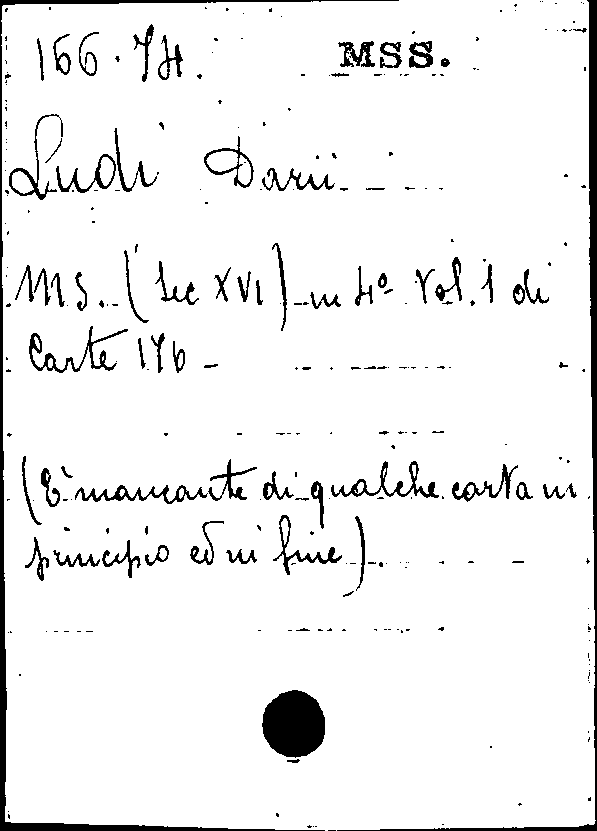 166.74. MSS.
Ludi Darii
MS. (Sec XVI) in 4º Vol. 1 di
Carte 176 -
(È mancante di qualche carta in
principio ed in fine).